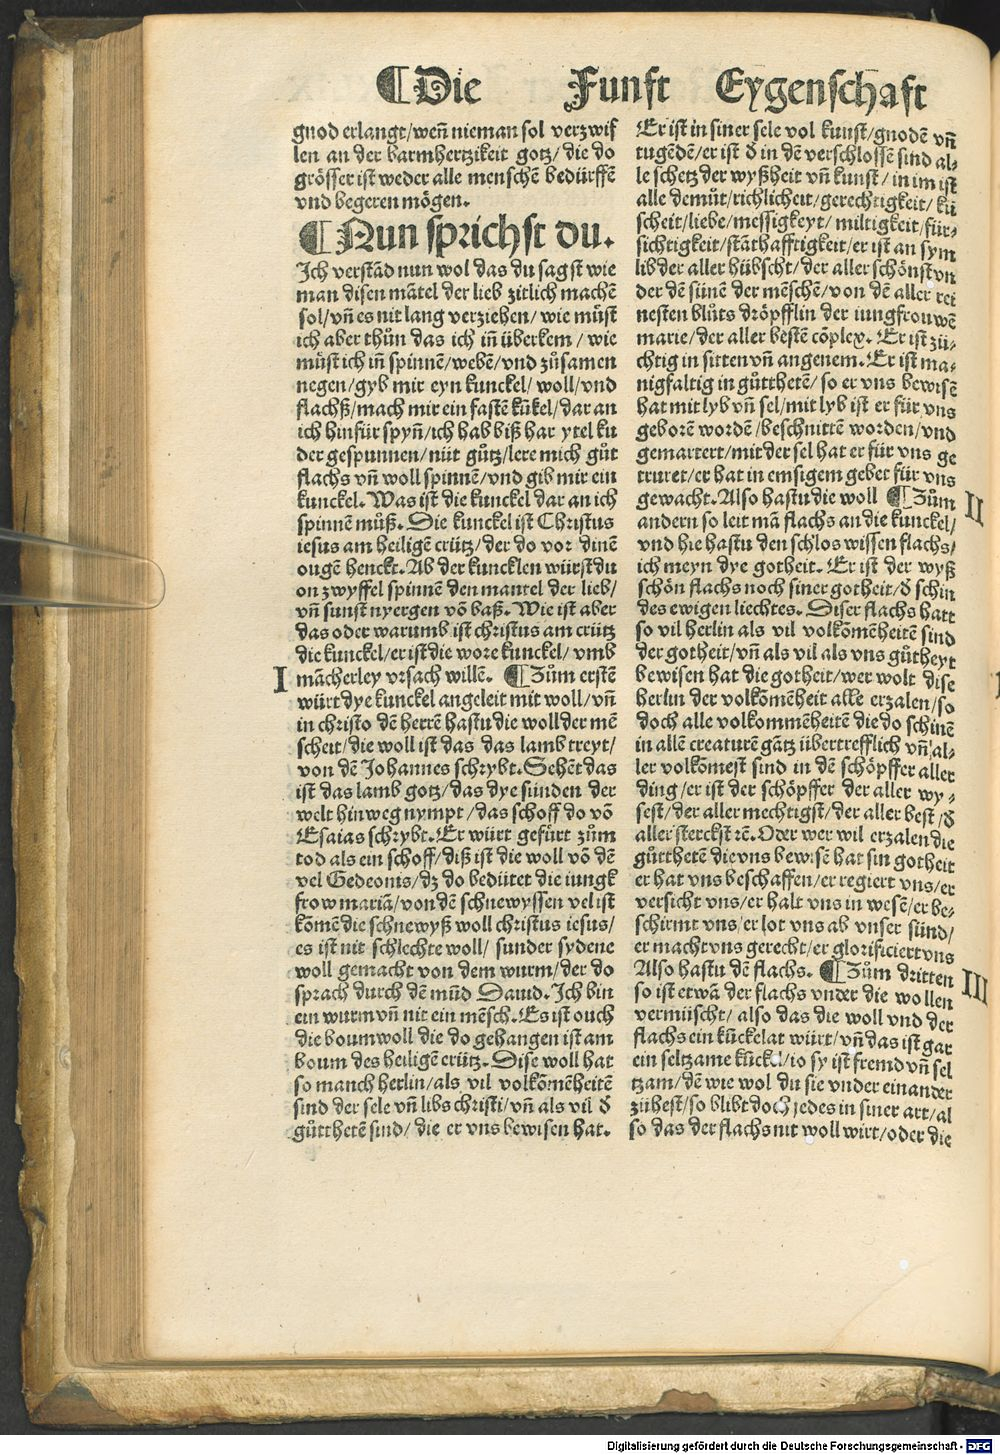 ¶Die Funft Eygenschaft
gnod erlangt/weñ nieman sol verzwif
len an der barmhertzikeit gotz/ die do
grösser ist weder alle menschē bedürffē
vnd begeren mögen.
¶Nun sprichst du.
Ich verstād nun wol das du sagst wie
man disen mātel der lieb zitlich machē
sol/vñ es nit lang verziehen/ wie müst
ich aber thůn das ich iñ überkem / wie
müst ich iñ spinnē/webē/vnd zůsamen
negen/gyb mir eyn kunckel/ woll/vnd
flachß/mach mir ein fastē kūkel/dar an
ich hinfür spyñ/ich hab biß har ytel ku
der gespunnen/nüt gůtz/lere mich gůt
flachs vñ woll spinnē/vnd gib mir ein
kunckel. Was ist die kunckel dar an ich
spinnē můß. Die kunckel ist Christus
iesus am heiligē crütz/der do vor dinē
ougē henckt. Ab der kuncklen würst du
on zwyffel spinnē den mantel der lieb/
vñ sunst nyergen vō baß. Wie ist aber
das oder warumb ist christus am crütz
die kunckel/er ist die wore kunckel/ vmb
I
mācherley vrsach willē. ¶Zům erstē
würt dye kunckel angeleit mit woll/vñ
in christo dē herrē hastu die woll der mē
scheit/die woll ist das das lamb treyt/
von dē Johannes schrybt. Sehēt das
ist das lamb gotz/das dye sünden der
welt hinweg nympt /das schoff do vō
Esaias schrybt. Er würt gefürt zům
tod als ein schoff/diß ist die woll vō dē
vel Gedeonis/dz do bedütet die iungk
frow mariā/von dē schnewyssen vel ist
kōmē die schnewyß woll christus iesus/
es ist nit schlechte woll/ sunder sydene
woll gemacht von dem wurm/der do
sprach durch dē mūd Dauid. Ich bin
ein wurm vñ nit ein mēsch. Es ist ouch
die boumwoll die do gehangen ist am
boum des heiligē crütz. Dise woll hat
so manch herlin/als vil volkōmēheitē
sind der sele vñ libs christi/vñ als vil ð
gůtthetē sind/ die er vns bewisen hat.
Er ist in siner sele vol kunst/gnodē vñ
tugēdē/er ist ð in dē verschlossē sind al⸗
le schetz der wyßheit vñ kunst/ in im ist
alle demůt/richlicheit/gerechtigkeit/kü
scheit/liebe/messigkeyt/ miltigkeit/für⸗
sichtigkeit/stāthafftigkeit/er ist an sym
lib der aller hübscht/der aller schönst vn
der dē sünē der mēschē/von dē aller rei
nesten blůts dröpfflin der iungfrouwē
marie/der aller bestē cōplex. Er ist zü⸗
chtig in sitten vñ angenem. Er ist ma⸗
nigfaltig in gůtthetē/ so er vns bewisē
hat mit lyb vñ sel/mit lyb ist er für vns
geborē wordē/beschnittē worden/vnd
gemartert/mit der sel hat er für vns ge
truret/er hat in emsigem gebet für vns
gewacht. Also hastu die woll ¶Zům
II
andern so leit mā flachs an die kunckel/
vnd hie hastu den schloswissen flachs/
ich meyn dye gotheit. Er ist der wyß
schön flachs noch siner gotheit/ð schin
des ewigen liechtes. Diser flachs hatt
so vil herlin als vil volkōmēheitē sind
der gotheit/vñ als vil als vns gůtheyt
bewisen hat die gotheit/wer wolt dise
herlin der volkōmēheit alle erzalen/so
doch alle volkommēheitē die do schinē
in allē creaturē gātz übertrefflich vñ al⸗
ler volkōmest sind in dē schöpffer aller
ding/er ist der schöpffer der aller wy⸗
sest/der aller mechtigst/der aller best/ð
aller sterckst ꝛē. Oder wer wil erzalen die
gůtthetē die vns bewisē hat sin gotheit
er hat vns beschaffen/er regiert vns/er
versicht vns/er halt vns in wesē/er be⸗
schirmt vns/er lot vns ab vnser sünd/
er macht vns gerecht/er glorificiert vns
Also hastu dē flachs. ¶Zům dritten
III
so ist etwā der flachs vnder die wollen
vermüscht/ also das die woll vnd der
flachs ein kückelat würt/vñ das ist gar
ein seltzame kückel/io sy ist fremd vñ sel
tzam/dē wie wol du sie vnder einander
zühest/so blibt doch iedes in siner art/al
so das der flachs nit woll wirt/oder die
Digitalisierung gefördert durch die Deutsche Forschungsgemeinschaft - DFG